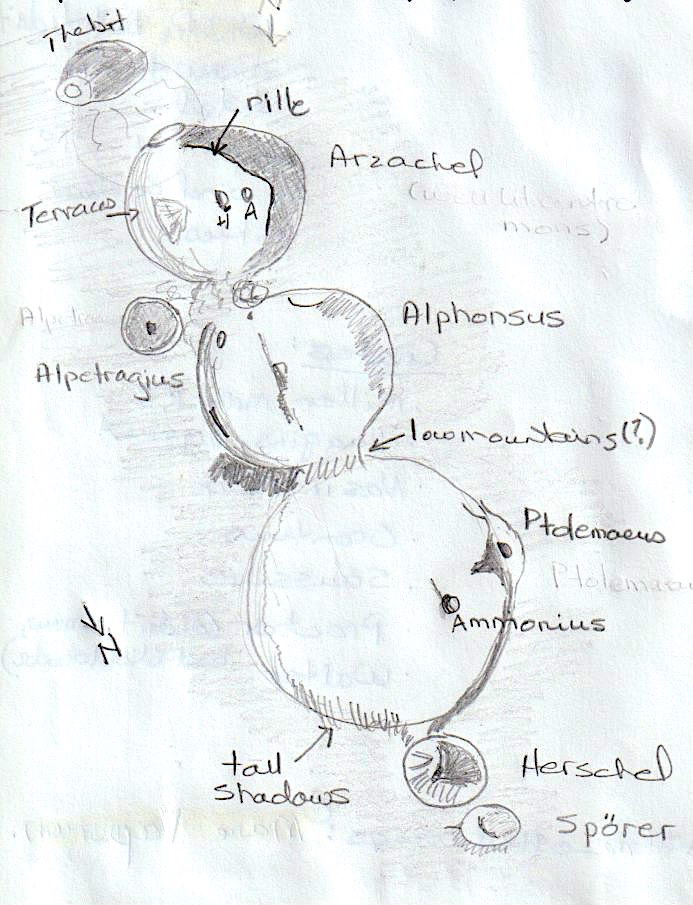 Thebit
rille
Arzachel
Terraces
H A
mons)
Alphonsus
Alpetragius
low mountains(?)
Ptolemaeus
Ptolemaeu
Ammonius
N
tall
shadows
Herschel
Spörer